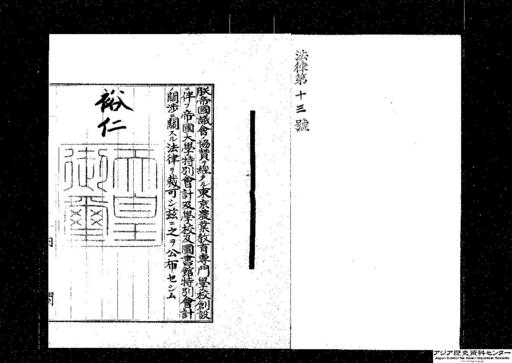 法律第十三號
朕帝國議會ノ協贊ヲ經タル東京農業教育專門學校創設
ニ伴フ帝國大學特別會計及學校及圖書館特別會計
ノ關涉ニ關スル法律ヲ裁可シ茲ニ之ヲ公布セシム
裕仁
天皇御璽
アジア歴史資料センター
Japan Center for Asian Historical Records